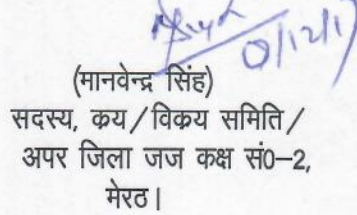 (मानवेन्द्र सिंह)
सदस्य, क्रय/विक्रय समिति/
अपर जिला जज कक्ष सं0–2,
मेरठ।